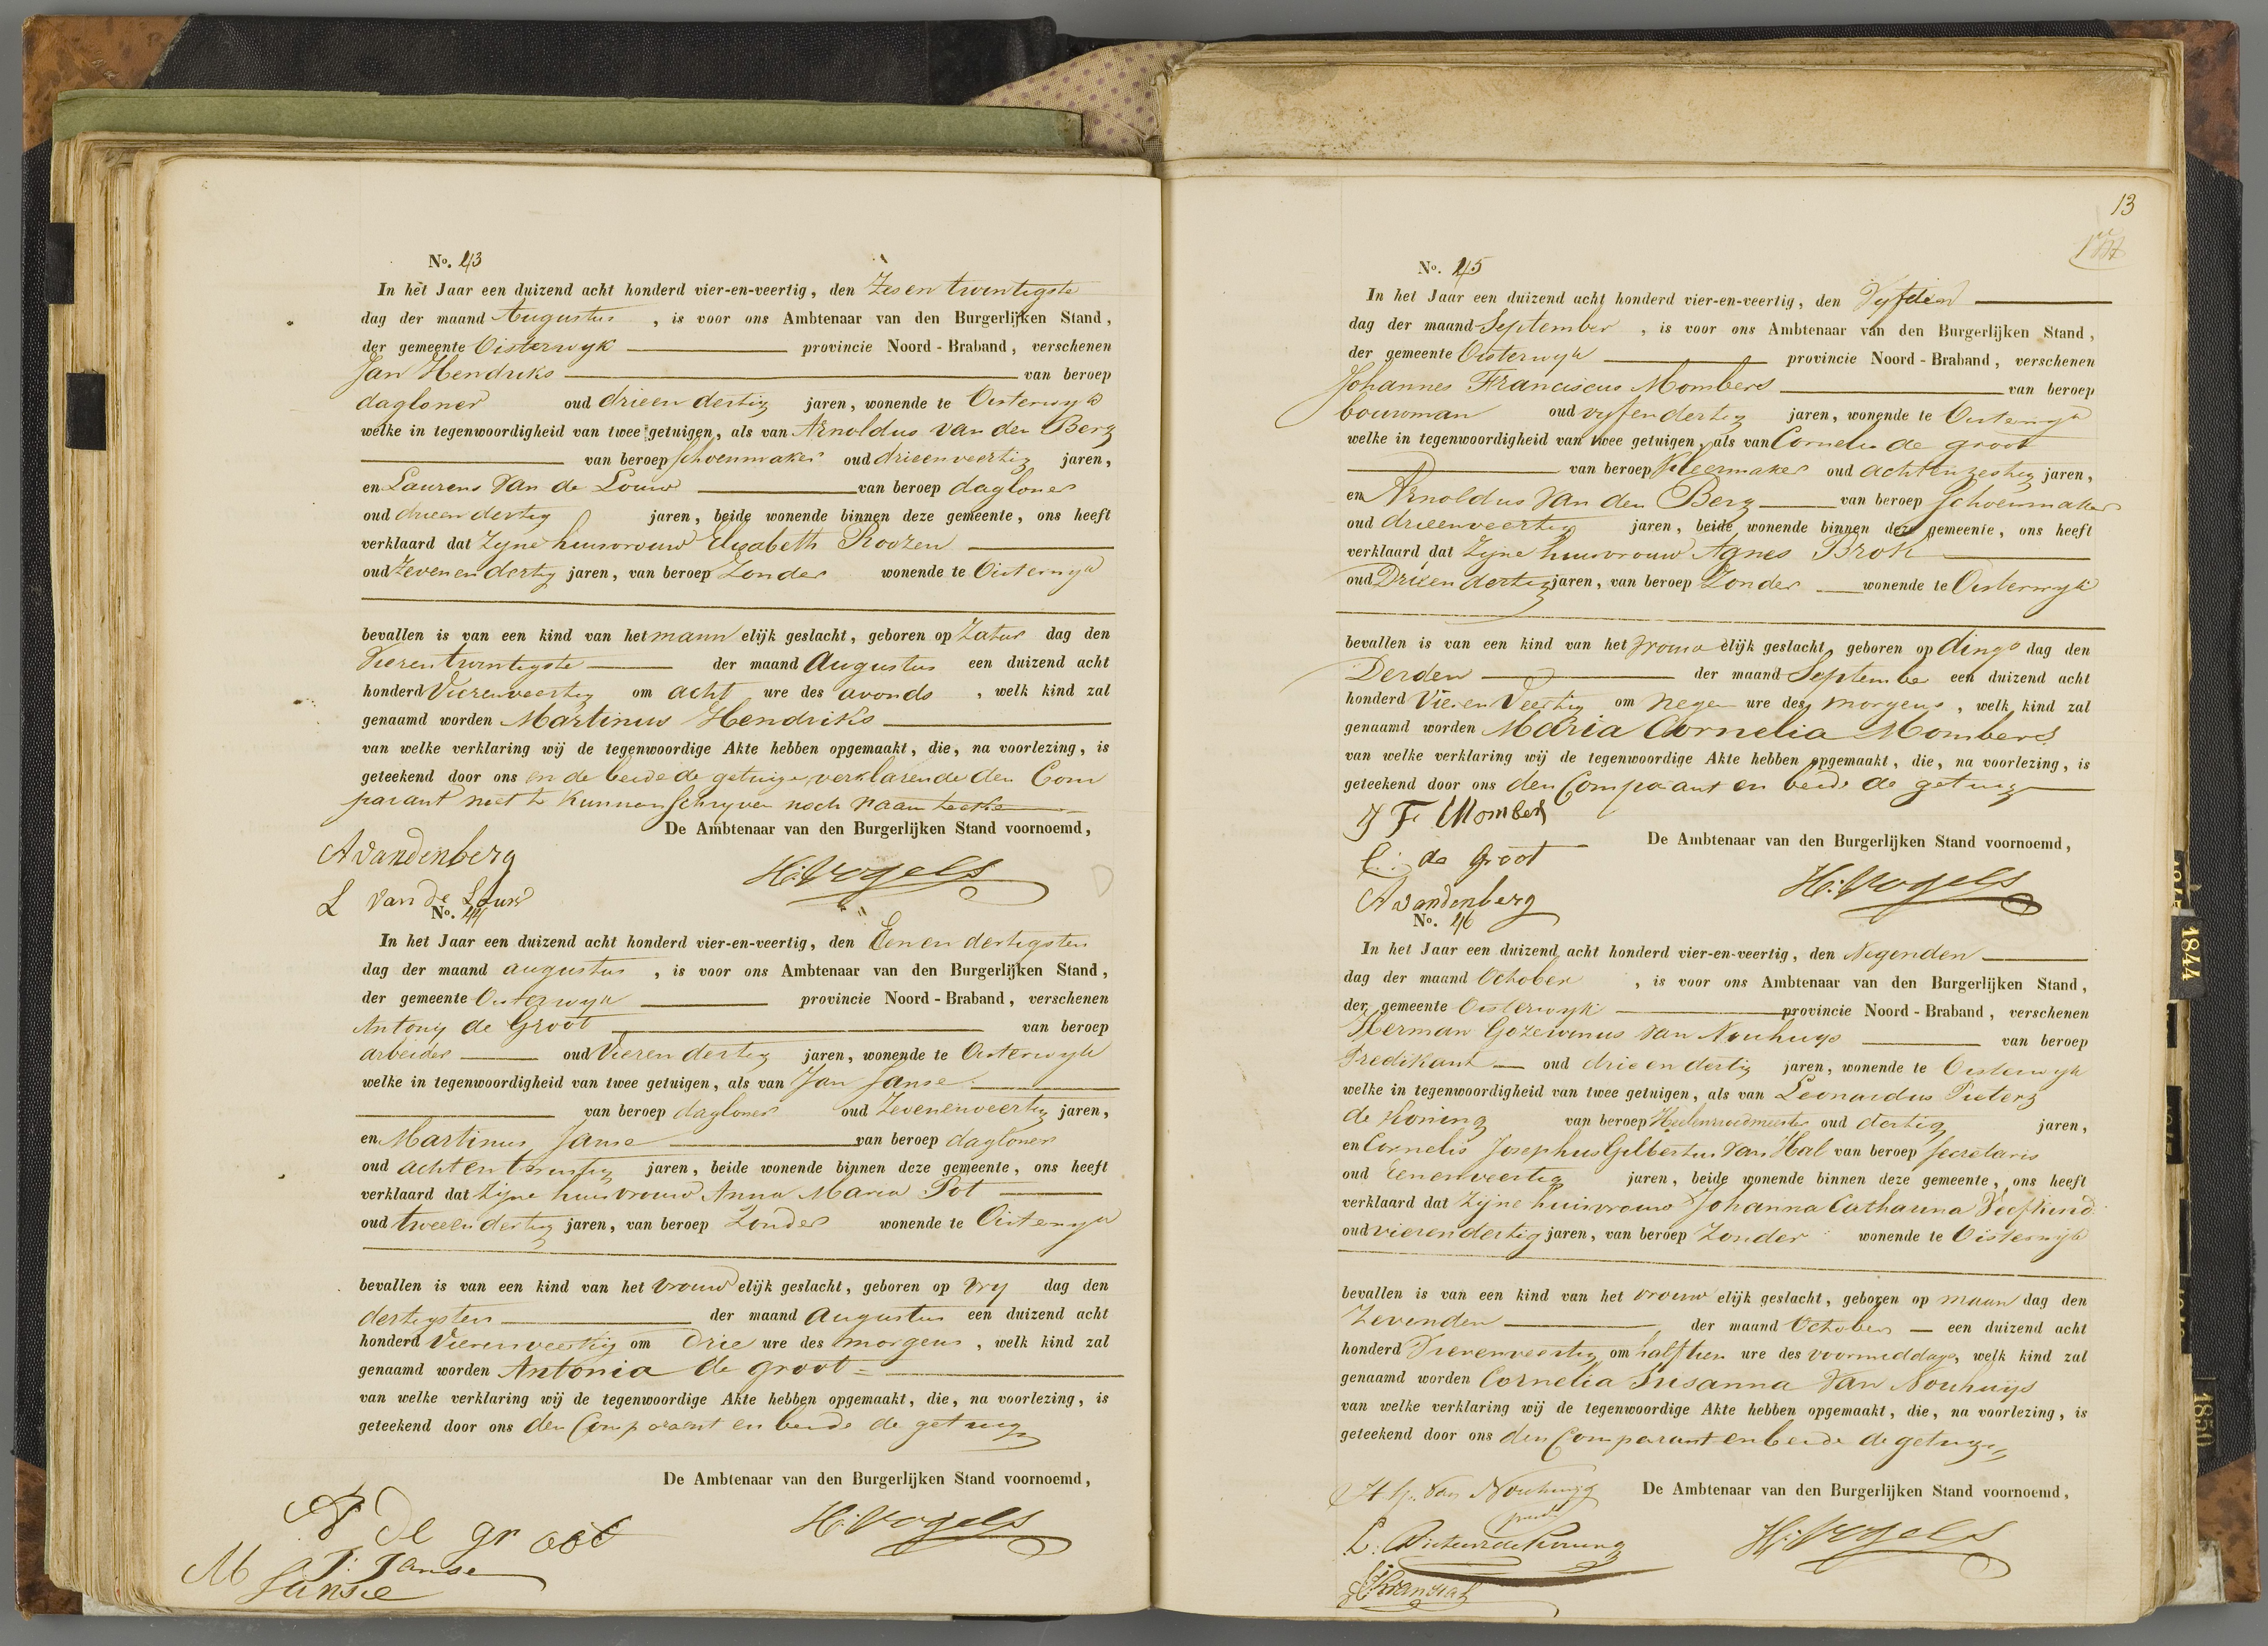 No. 43
In het Jaar een duizend acht honderd vier-en-veertig, den Zesentwintigste
dag der maand Augustus, is voor ons Ambtenaar van den Burgerlijken Stand,
der gemeente Oisterwyk provincie Noord-Braband, verschenen
Jan Hendriks van beroep
dagloner oud drieendertig jaren, wonende te Oisterwyk
welke in tegenwoordigheid van twee getuigen, als van Arnoldus van den Berg
van beroep schoenmaker oud drieenveertig jaren,
en Laurens van de Louw van beroep dagloner
oud drieendertig jaren, beide wonende binnen deze gemeente, ons heeft
verklaard dat Zyne huisvrouw Elisabeth Roozen
oud Zevenendertig jaren, van beroep Zonder wonende te Oisterwyk
bevallen is van een kind van het mannelijk geslacht, geboren op Zaturdag den
Vierentwintigste der maand Augustus een duizend acht
honderd Vierenveertig om acht ure des avonds, welk kind zal
genaamd worden Martinus Hendriks
van welke verklaring wij de tegenwoordige Akte hebben opgemaakt, die, na voorlezing, is
geteekend door ons en de beide de getuigen, verklarende den Com
parant niet te kunnen schryven noch naam teeke
De Ambtenaar van den Burgerlijken Stand voornoemd,
A vandenberg
H: Vogels
L van de Louw
No. 44
In het Jaar een duizend acht honderd vier-en-veertig, den Eenendertigsten
dag der maand augustus, is voor ons Ambtenaar van den Burgerlijken Stand,
der gemeente Oisterwyk provincie Noord-Braband, verschenen
Antony de Groot van beroep
arbeider oud Vierendertig jaren, wonende te Oisterwyk
welke in tegenwoordigheid van twee getuigen, als van Jan Janse
van beroep dagloner oud Zevenenveertig jaren,
en Martinus Janse van beroep dagloner
oud achtentwintig jaren, beide wonende binnen deze gemeente, ons heeft
verklaard dat Zyne huisvrouw Anna Maria Pot
oud tweeendertig jaren, van beroep Zonder wonende te Oisterwyk
bevallen is van een kind van het vrouwelijk geslacht, geboren op Vrydag den
dertigsten der maand Augustus een duizend acht
honderd Vierenveertig om Drie ure des morgens, welk kind zal
genaamd worden Antonia de groot
van welke verklaring wij de tegenwoordige Akte hebben opgemaakt, die, na voorlezing, is
geteekend door ons den Comparant en beide de getuige
De Ambtenaar van den Burgerlijken Stand voornoemd,
A de groot
H: Vogels
J: Janse
M Janse
13
No. 45
In het Jaar een duizend acht honderd vier-en-veertig, den Vyfden
dag der maand September, is voor ons Ambtenaar van den Burgerlijken Stand,
der gemeente Oisterwyk provincie Noord-Braband, verschenen
Johannes Franciscus Mombers van beroep
bouwman oud vyfendertig jaren, wonende te Oisterwyk
welke in tegenwoordigheid van twee getuigen, als van Cornelis de groot
van beroep Kleermaker oud achtenzestig jaren,
en Arnoldus van den Berg van beroep Schoenmaker
oud drieenveertig jaren, beide wonende binnen deze gemeente, ons heeft
verklaard dat Zyne huisvrouw Agnes Brok
oud Drieendertig jaren, van beroep Zonder wonende te Oisterwyk
bevallen is van een kind van het vrouwelijk geslacht, geboren op dingsdag den
Derden der maand September een duizend acht
honderd Vierenveertig om negen ure des morgens, welk kind zal
genaamd worden Maria Cornelia Mombers
van welke verklaring wij de tegenwoordige Akte hebben opgemaakt, die, na voorlezing, is
geteekend door ons den Comparant en beide de getuige
J F Mombers
De Ambtenaar van den Burgerlijken Stand voornoemd,
C: de Groot
H: Vogels
A vandenberg
No. 46
In het Jaar een duizend acht honderd vier-en-veertig, den Negenden
dag der maand October, is voor ons Ambtenaar van den Burgerlijken Stand,
der gemeente Oisterwyk provincie Noord-Braband, verschenen
Herman Gozewinus van Nouhuys van beroep
Predikant oud drieendertig jaren, wonende te Oisterwyk
welke in tegenwoordigheid van twee getuigen, als van Leonardus Pieterz
de Koning van beroep Heelenvroedmeester oud dertig jaren,
en Cornelis Josephus Gilbertus van Hal van beroep Secretaris
oud eenenveertig jaren, beide wonende binnen deze gemeente, ons heeft
verklaard dat Zyne huisvrouw Johanna Catharina Veefkind
oud vierendertig jaren, van beroep Zonder wonende te Oisterwyk
bevallen is van een kind van het vrouwelijk geslacht, geboren op maandag den
Zevenden der maand October een duizend acht
honderd Vierenveertig om half tien ure des voormiddags, welk kind zal
genaamd worden Cornelia Susanna van Nouhuijs
van welke verklaring wij de tegenwoordige Akte hebben opgemaakt, die, na voorlezing, is
geteekend door ons den Comparant en beide de getuige
H. G. van Nouhuijs
De Ambtenaar van den Burgerlijken Stand voornoemd,
L: Pieterzde Koning
H: Vogels
1844
1850